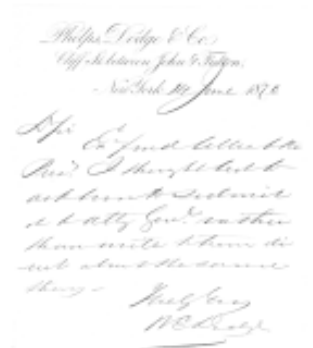 Phelps, Dodge & Co.
Cliff St. between John & Fulton,
New York 14 June 1876
D Sir
letter to the
Pres. I thought best to
ask him to submit
it to Atty Genl. rather
than write to him di
rect about the same
thing.
Truly Yours
W E Dodge